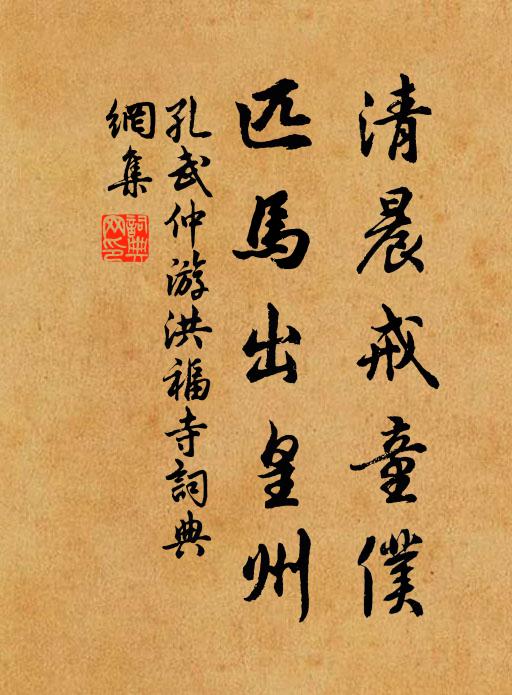 清晨戒童僕
匹馬出皇州
孔武仲游洪福寺詞典
網集
詞典網印